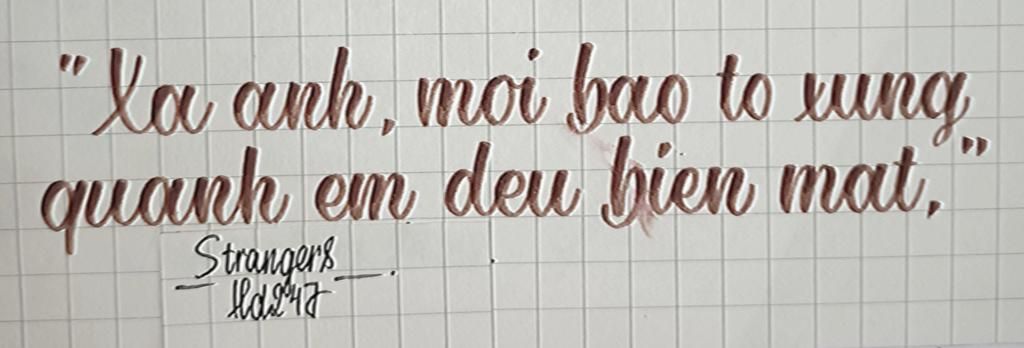 "Xa anh, moi bao to xung
quanh em deu bien mat,"
Strangers
Hd247